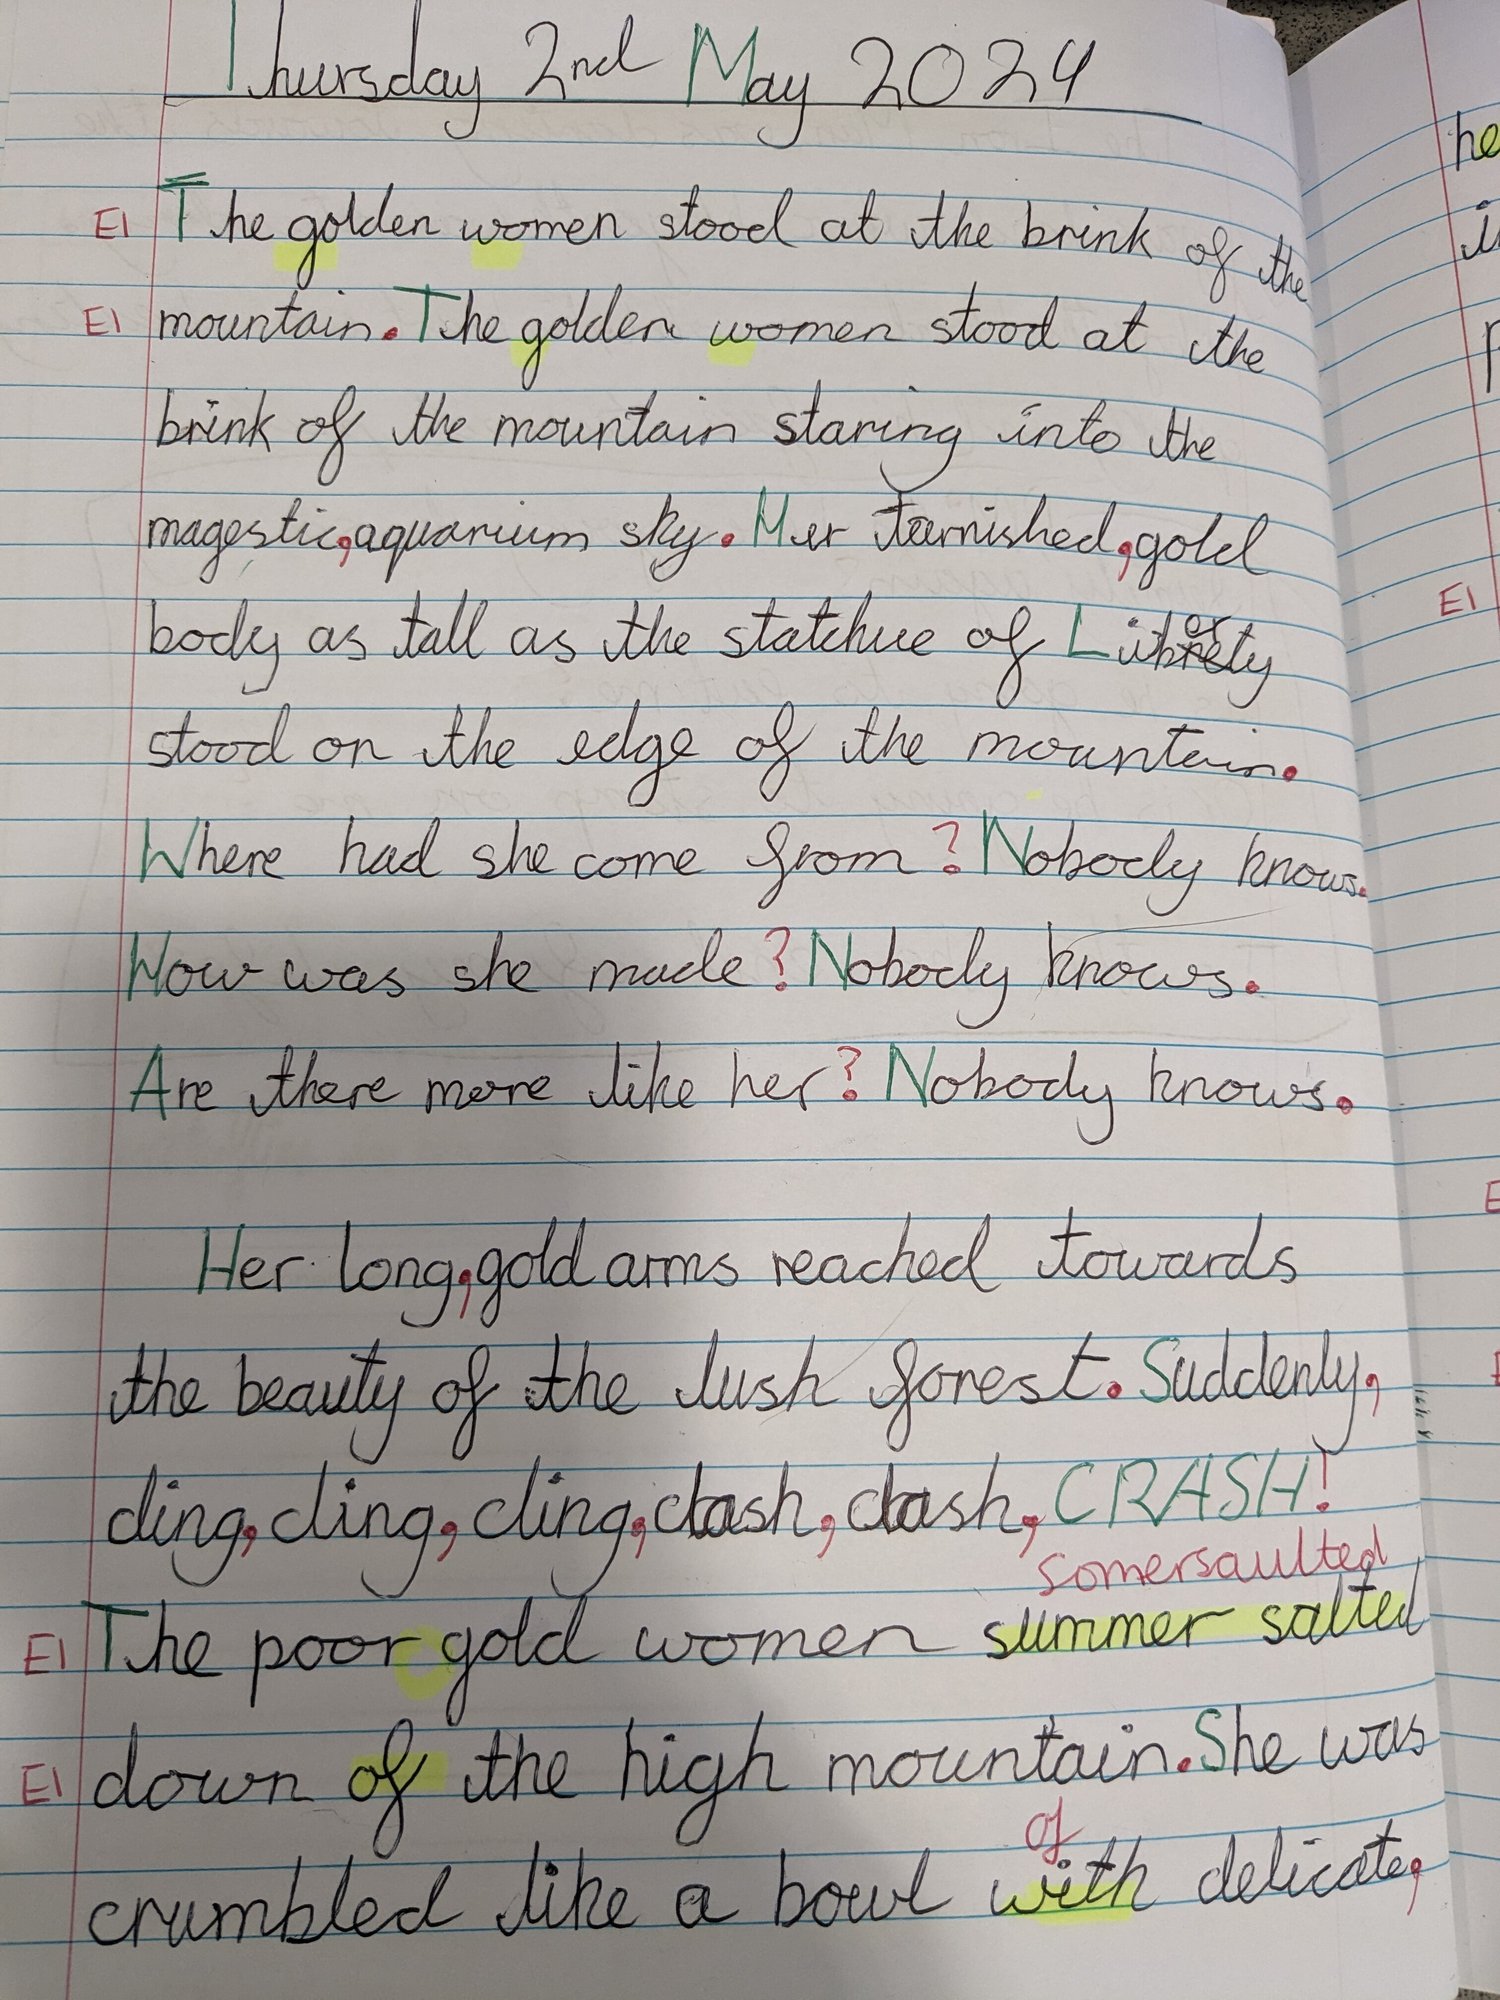 Thursday 2nd May 2024
E1 The golden women stood at the brink of the
E1 mountain. The golden women stood at the
brink of the mountain staring into the
magestic, aquarium sky. Her tarnished, gold
body as tall as the statchue of
stood on the edge of the mountain.
Where had she come from? Nobody knows.
How was she made? Nobody knows.
Are there more like her? Nobody knows.
Her long, gold arms reached towards
the beauty of the lush forest. Suddenly,
cling, cling, cling, clash, clash, CRASH!
somersaulted
E1 The poor gold women summer salted
E1 down of the high mountain. She was
of
crumbled like a bowl with delicate,
he
E1